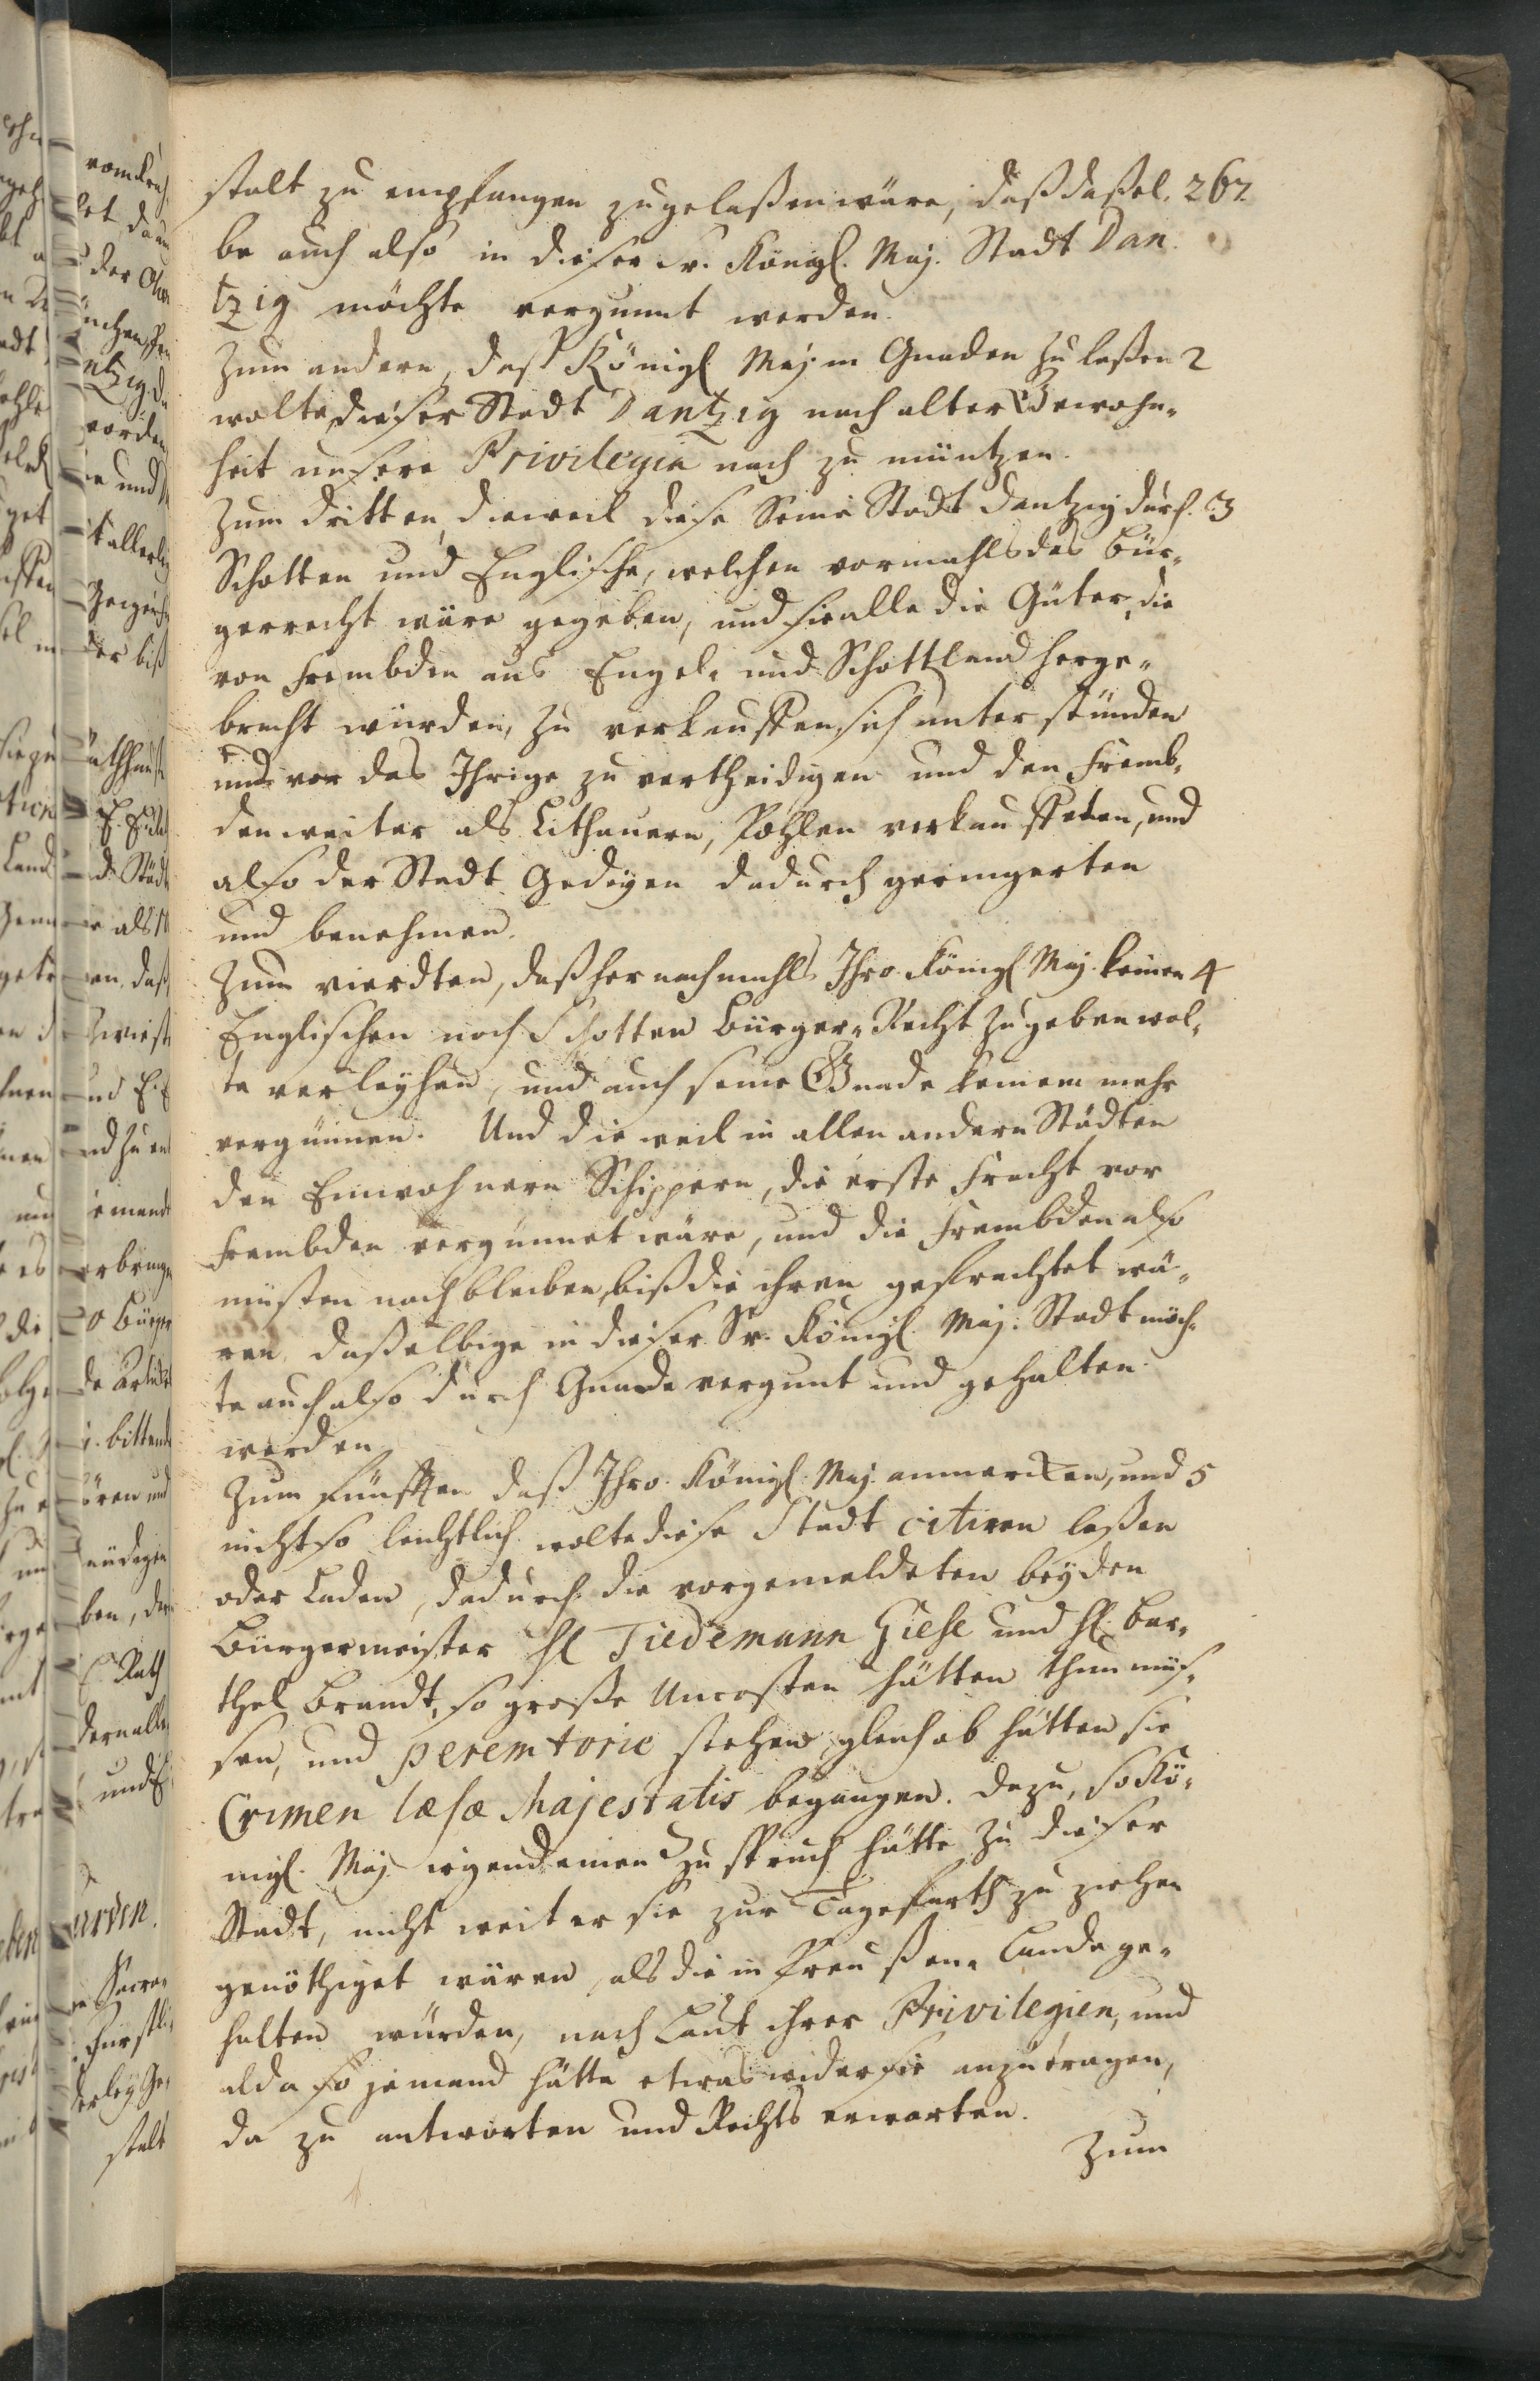 stalt zu empfangen zugelaßen wäre, daß daßel. 267.
be auch also in dieser Sr. Königl. Maj. Stadt Dan
tzig möchte vergunnt werden.
Zum andern, daß Königl Maj in Gnaden zu laßen 2
wolte dieser Stadt Dantzig nach alter Gewohn¬
heit unsere Privilegia nach zu müntzen.
Zum dritten, dieweil diese Seine Stadt Dantzig durch 3
Schotten und Englische, welchen vormahls das Bür¬
gerrecht wäre gegeben, und sie alle die Güter, die
von Frembden aus Engel. und Schottland herge¬
bracht würden, zu verkauffen sich unterstünden
und vor das Ihrige zu vertheidigen und den Fremb¬
den weiter als Lithauern, Pohlen verkauffeten, und
also der Stadt Gedigen dadurch geringerten
und benehmen.
Zum vierdten, daß hernachmahls Ihro Königl Maj. keinen 4
Englischen noch Schotten Bürger-Recht zu geben wol¬
te verleyhen, und auch seine Gnade keinem mehr
vergünnen. Und die weil in allen andern Städten
den Einwohnern Schippern, die erste Fracht vor
Frembden vergünnet wäre, und die Frembden also
müsten nachbleiben, biß die ihren gefrachtet wä¬
ren, daßelbige in dieser Sr. Königl. Maj. Stadt möch¬
te auch also durch Gnade vergunt und gehalten
werden.
Zum Fünfften daß Ihro Königl. Maj. anmercken, und 5
nicht so leichtlich wolte diese Stadt citiren laßen
oder Laden, dadurch die vorgemeldeten beyden
Bürgermeister H Tiedemann Giese und H. Bar¬
thel Brandt, so große Uncosten hätten thun müs¬
sen, und peremtorie stehen, gleich ob hätten sie
Crimen læsæ Majestatis begangen. Dazu, so Kö¬
nigl. Maj. irgend einen Zuspruch hätte zu dieser
Stadt, nicht weiter sie zur Tagefarth zu ziehen
genöthiget wären, als die in Preußen Lande ge¬
halten würden, nach Laut ihrer Privilegien, und
alda so jemand hätte etwas wider sie anzutragen,
da zu antworten und Rechts erwarten.
Zum